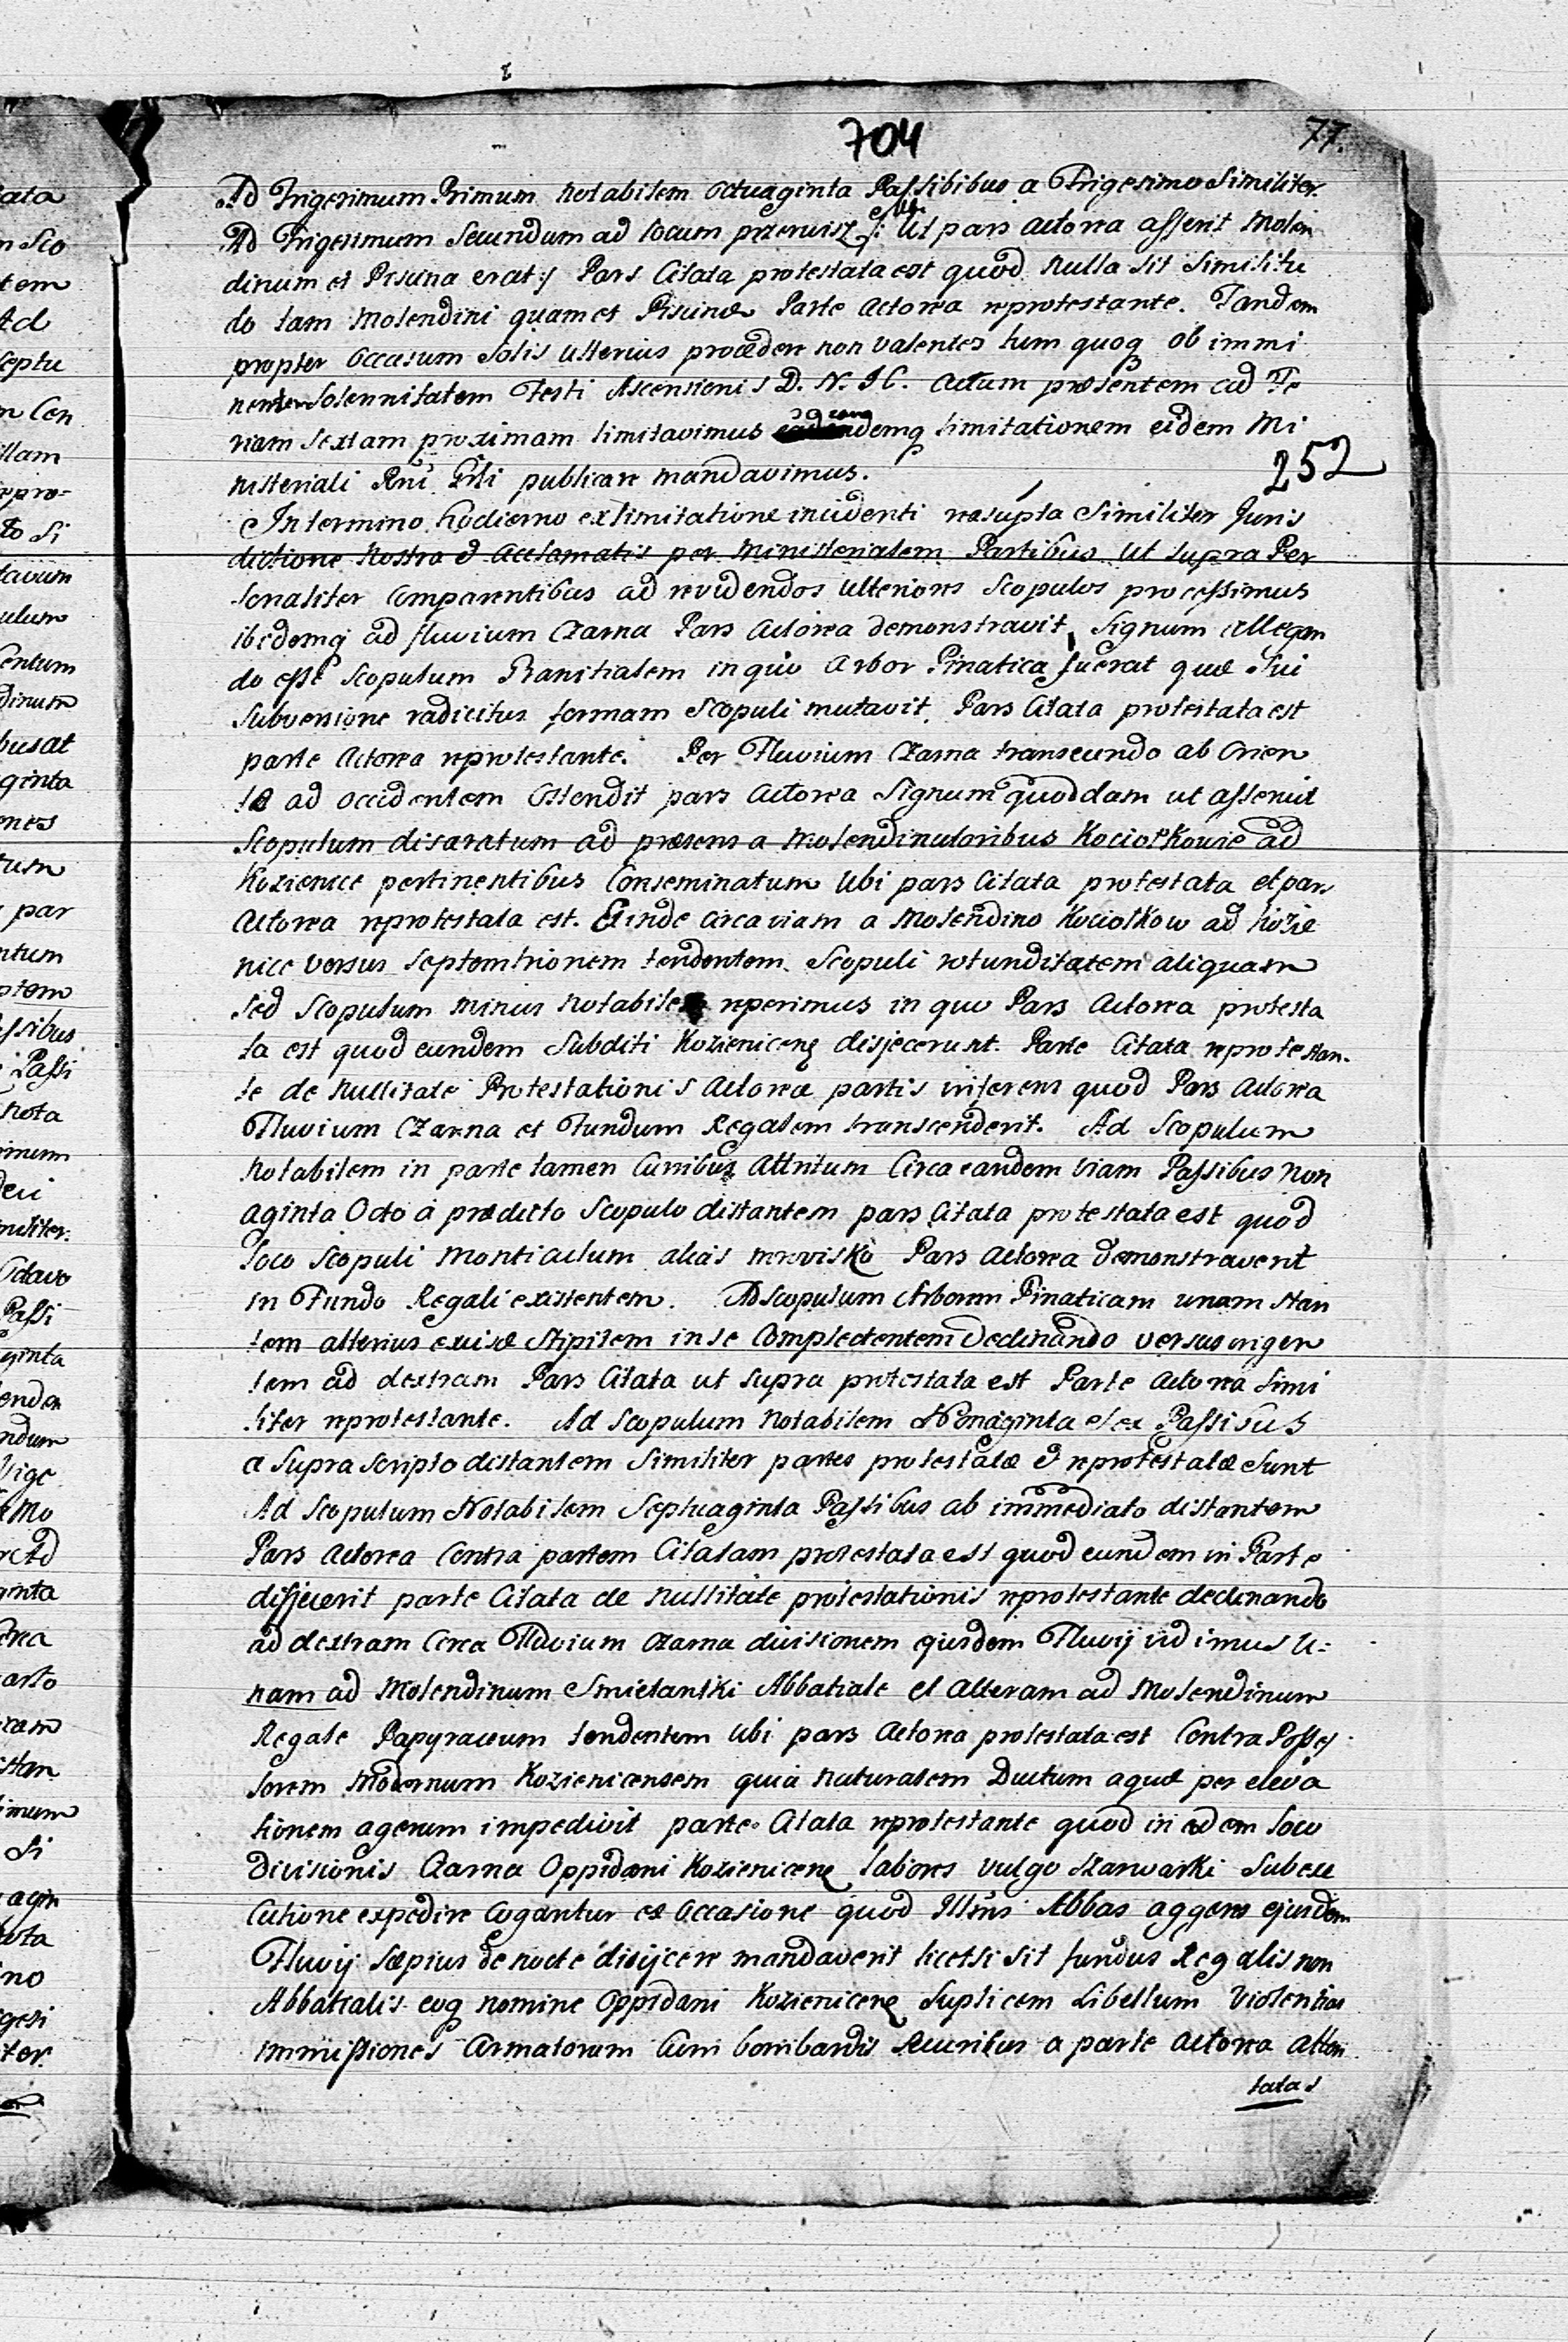 704
77.
Ad Trigesimum Primum notabilem octuaginta Passibibus a Trigesimo Similiter
Ad Trigesimum Secundum ad locum przerwisk /: Ut pars actorea asserit Molen
dinum et Piscina erat :/ Pars Citata protestata est quod nulla sit Similitu
do tam Molendini quam et Piscinæ Parte Actorea reprotestante. Tandem
propter occasum Solis ulterius procedere non valentes tum quoq ob immi
nentem Solennitatem Festi Ascensionis D. N. J C. Actum præsentem ad Fe
riam sextam proximam limitavimus eandemq limitationem eidem Mi
nisteriali Rni Gnli publicare mandavimus.
252
In termino hodierno ex limitatione incidenti reasupta Similiter Juris
dictione Nostra & acclamatis per Ministerialem Partibus ut supra Per
sonaliter Comparentibus ad revidendos ulteriores Scopulos processimus
ibidemq ad fluvium Czarna Pars Actorea demonstravit Signum allegan
do esse Scopulum Granitialem in quo Arbor Pinatica fuerat quæ sui
Subversione radicitus formam Scopuli mutavit. Pars Citata protestata est
parte Actorea reprotestante. Per Fluvium Czarna transeundo ab Orien
te ad occidentem Ostendit pars Actorea Signum quoddam ut asseruit
Scopulum disaratum ad præsens a Molendinatoribus Kociołkowie ad
Kozienice pertinentibus Conseminatum Ubi pars Citata protestata et pars
Actorea reprotestata est. Exinde circa viam a Molendino Kociołkow ad Kozie
nice versus Septemtrionem tendentem Scopuli rotunditatem aliquam
sed Scopulum minus notabilem reperimus in quo Pars Actorea protesta
ta est quod eundem Subditi Kozienicens disjecerunt. Parte Citata reprotestan-
te de nullitate Protestationis Actoreæ partis inferens quod Pars Actorea
Fluvium Czarna et Fundum Regalem transcenderit. Ad Scopulum
notabilem in parte tamen Curribus Attritum Circa eandem viam Passibus non
aginta Octo a prædicto Scopulo distantem pars Citata protestata est quod
loco Scopuli Monticulum alias mrowisko Pars Actorea demonstraverit
in Fundo Regali existentem. Ad scopulum Arborem Pinaticam unam stan
tem alterius excisæ Stipitem in se Complectentem Declinando versus
tem ad dextram Pars Citata ut supra protestata est Parte Actorea Simi
liter reprotestante. Ad Scopulum notabilem Nonaginta sex Passibus
a supra scripto distantem Similiter partes protestatæ & reprotestatæ sunt
Ad Scopulum Notabilem Septuaginta Passibus ab immediato distantem
Pars Actorea Contra partem Citatam protestata est quod eundem in Parte
disjecerit parte Citata de nullitate protestationis reprotestante declinando
ad dextram Circa Fluvium Czarna divisionem ejusdem Fluvij vidimus U=
nam ad Molendinum Smietanki Abbatiale et alteram ad Molendinum
Regale Papyraceum tendentem Ubi pars Actorea protestata est Contra Posses
sorem Modernum Kozienicensem quia naturalem Ductum aquæ per eleva
tionem agerum impedivit parte Citata reprotestante quod in eodem loco
divisionis Czarna Oppidani Kozienicens labores vulgo Szarwarki Sub exe
cutione expedire cogantur ex occasione quod Illmus Abbas aggeres ejusdem
Fluvij sæpius de nocte disijcere mandaverit licet si sit fundus Regalis non
Abbatialis eoq nomine Oppidani Kozienicens Suplicem Libellum Violentias
immissiones Armatorum Cum bombardis securibus a parte actorea Atten
tatas